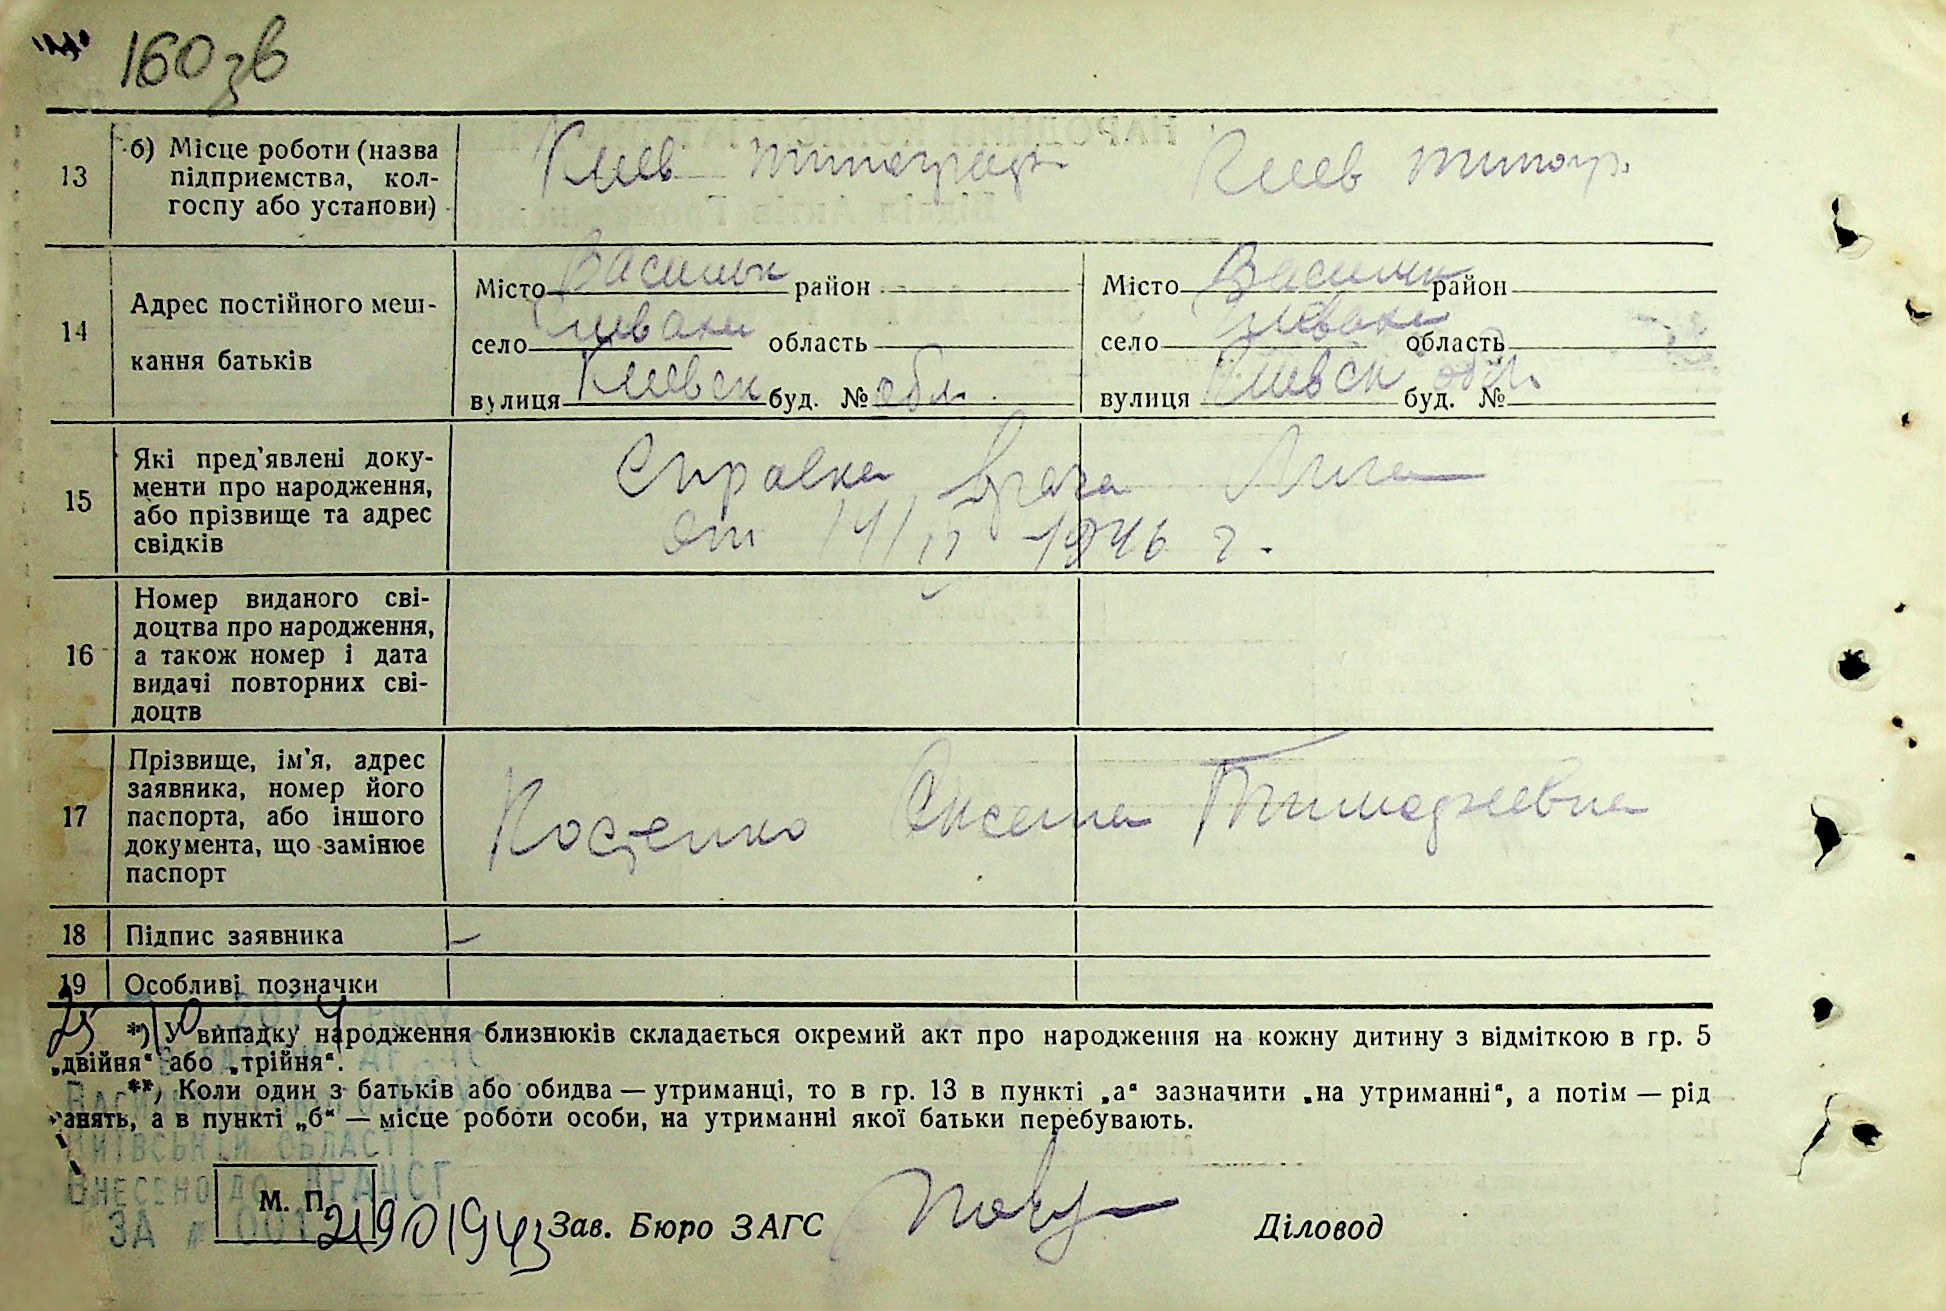 160 зв
13
б) Місце роботи (назва
підприємства, кол-
госпу або установи)
Киев типограф Киев типогр.
14
Адрес постійного меш-
кання батьків
Місто Васильк район Місто Васильк район
село область село область
вулиця Киевск буд. № обл. вулиця Киевск обл. буд. №
15
Які пред'явлені доку-
менти про народження,
або прізвище та адрес
свідків
Справка врача
от 14/II 1946 г.
16
Номер виданого сві-
доцтва про народження,
а також номер і дата
видачі повторних сві-
доцтв
17
Прізвище, ім'я, адрес
заявника, номер його
паспорта, або іншого
документа, що замінює
паспорт
Костенко Оксена Тимофеевна
18 Підпис заявника
19 Особливі позначки
*) У випадку народження близнюків складається окремий акт про народження на кожну дитину з відміткою в гр. 5
„двійня“ або „трійня“.
**) Коли один з батьків або обидва — утриманці, то в гр. 13 в пункті „а“ зазначити „на утриманні“, а потім — рід
занять, а в пункті „б“ — місце роботи особи, на утриманні якої батьки перебувають.
Київській області
Внесено до ДРАЦСГ
за № 00121901943
М. П.
Зав. Бюро ЗАГС
Діловод